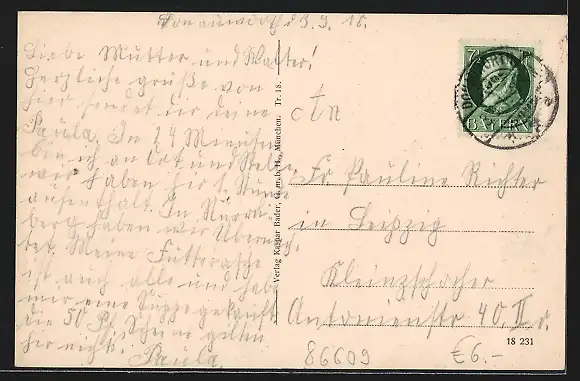 Donauwörth d. 3.9. 18.
Liebe Mutter und Walter!
Herzliche grüße von
hier sendet dir deine
Paula. In 24 Minuten
bin ich an Ort und Stelle
wir haben hier 1. Stunde
aufenthalt. In Nürn
berg haben wir Überna
tet. Meine Futterasche
ist auch alle und hab
mir eine Suppe gekauft
die 50 Pf. Scheine gelten
her nicht. Paula.
Verlag Kaspar Bader, G. m. b. H., München. Tr. 18.
7½
BAYERN
An
Fr. Pauline Richter
in Leipzig
Kleinzschocher
Antonienstr 40. II r.
18 231
86609 €6.-